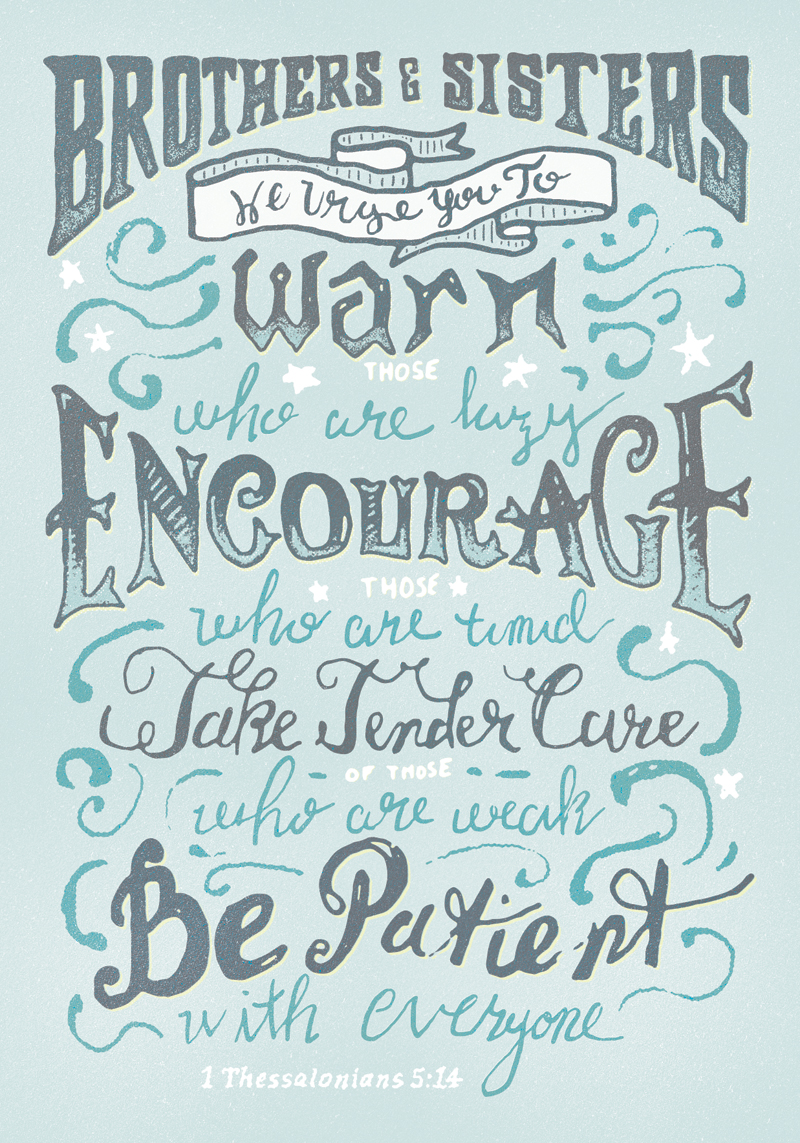 BROTHERS & SISTERS
We Urge You To
Warn
THOSE
who are lazy
ENCOURAGE
THOSE
who are timid
Take Tender Care
OF THOSE
who are weak
Be Patient
with everyone
1 Thessalonians 5:14